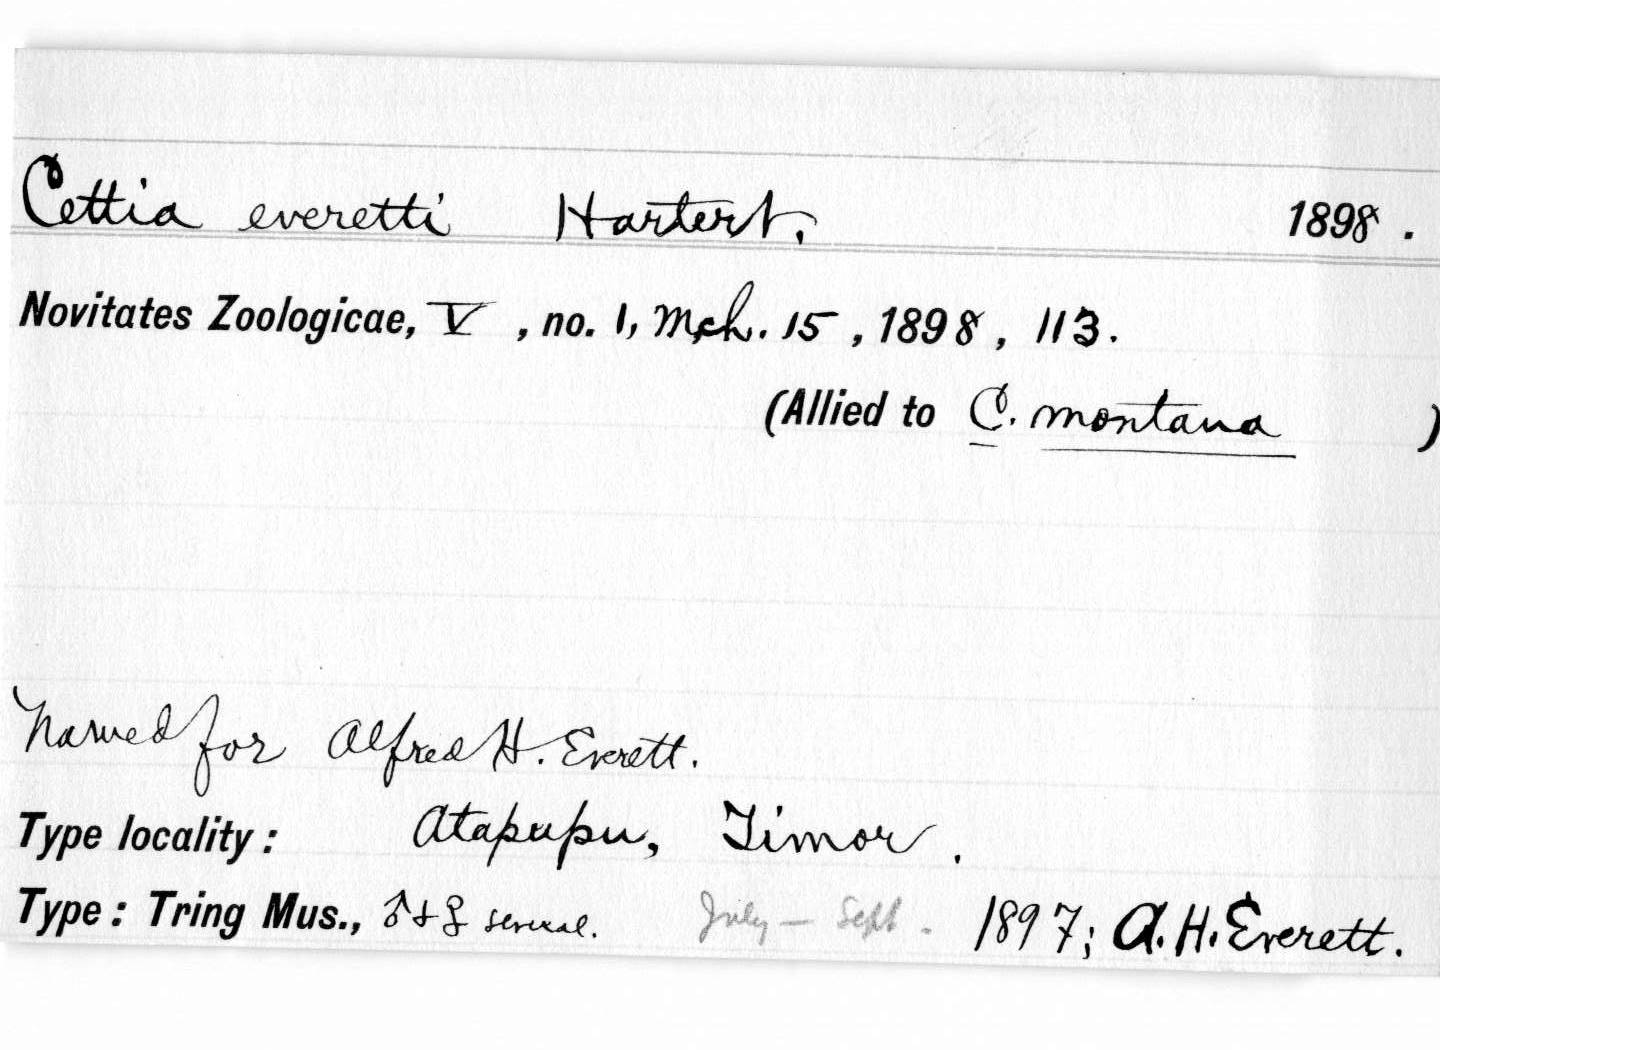 Cettia everetti Hartert. 1898.
Novitates Zoologicae, V, no. 1, Mch. 15, 1898, 113.
(Allied to C. montana)
Named for Alfred H. Everett.
Type locality: Atapupu, Timor.
Type: Tring Mus., ♂ + ♀ several. July – Sept. 1897; A. H. Everett.